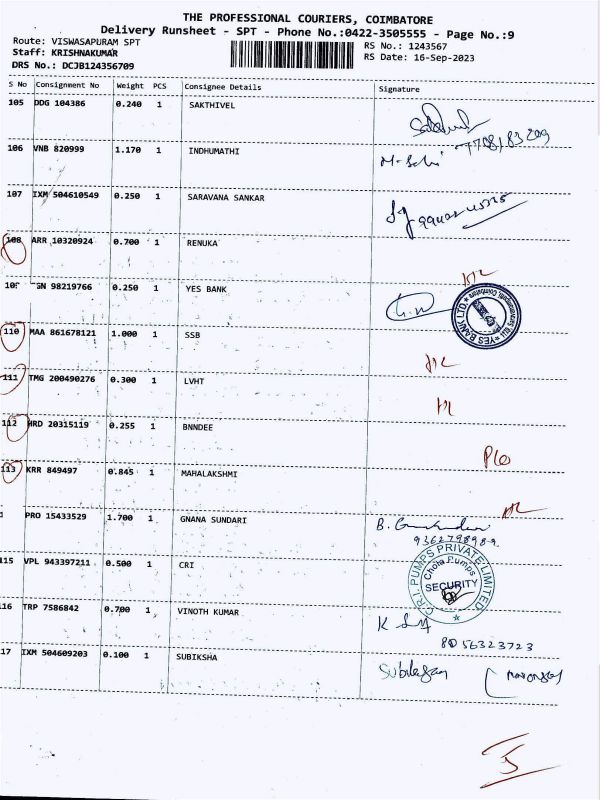 THE PROFESSIONAL COURIERS, COIMBATORE
Delivery Runsheet - SPT - Phone No.:0422-3505555 - Page No.:9
Route: VISWASAPURAM SPT
RS No.: 1243567
Staff: KRISHNAKUMAR
RS Date: 16-Sep-2023
DRS No.: DCJB124356709
S No Consignment No Weight PCS Consignee Details Signature
105 DDG 104386 0.240 1 SAKTHIVEL
7708183209
106 VNB 820999 1.170 1 INDHUMATHI
107 IXM 504610549 0.250 1 SARAVANA SANKAR
108 ARR 10320924 0.700 1 RENUKA
10 GN 98219766 0.250 1 YES BANK
YES BANK LTD.
110 MAA 861678121 1.000 1 SSB
111 TMG 200490276 0.300 1 LVHT
112 HRD 20315119 0.255 1 BNNDEE
113 KRR 849497 0.845 1 MAHALAKSHMI
PRO 15433529 1.700 1 GNANA SUNDARI
9362798989
C.R.I. PUMPS PRIVATE LIMITED
Chola Pumps
SECURITY
115 VPL 943397211 0.500 1 CRI
116 TRP 7586842 0.700 1 VINOTH KUMAR
8056323723
17 IXM 504609203 0.100 1 SUBIKSHA